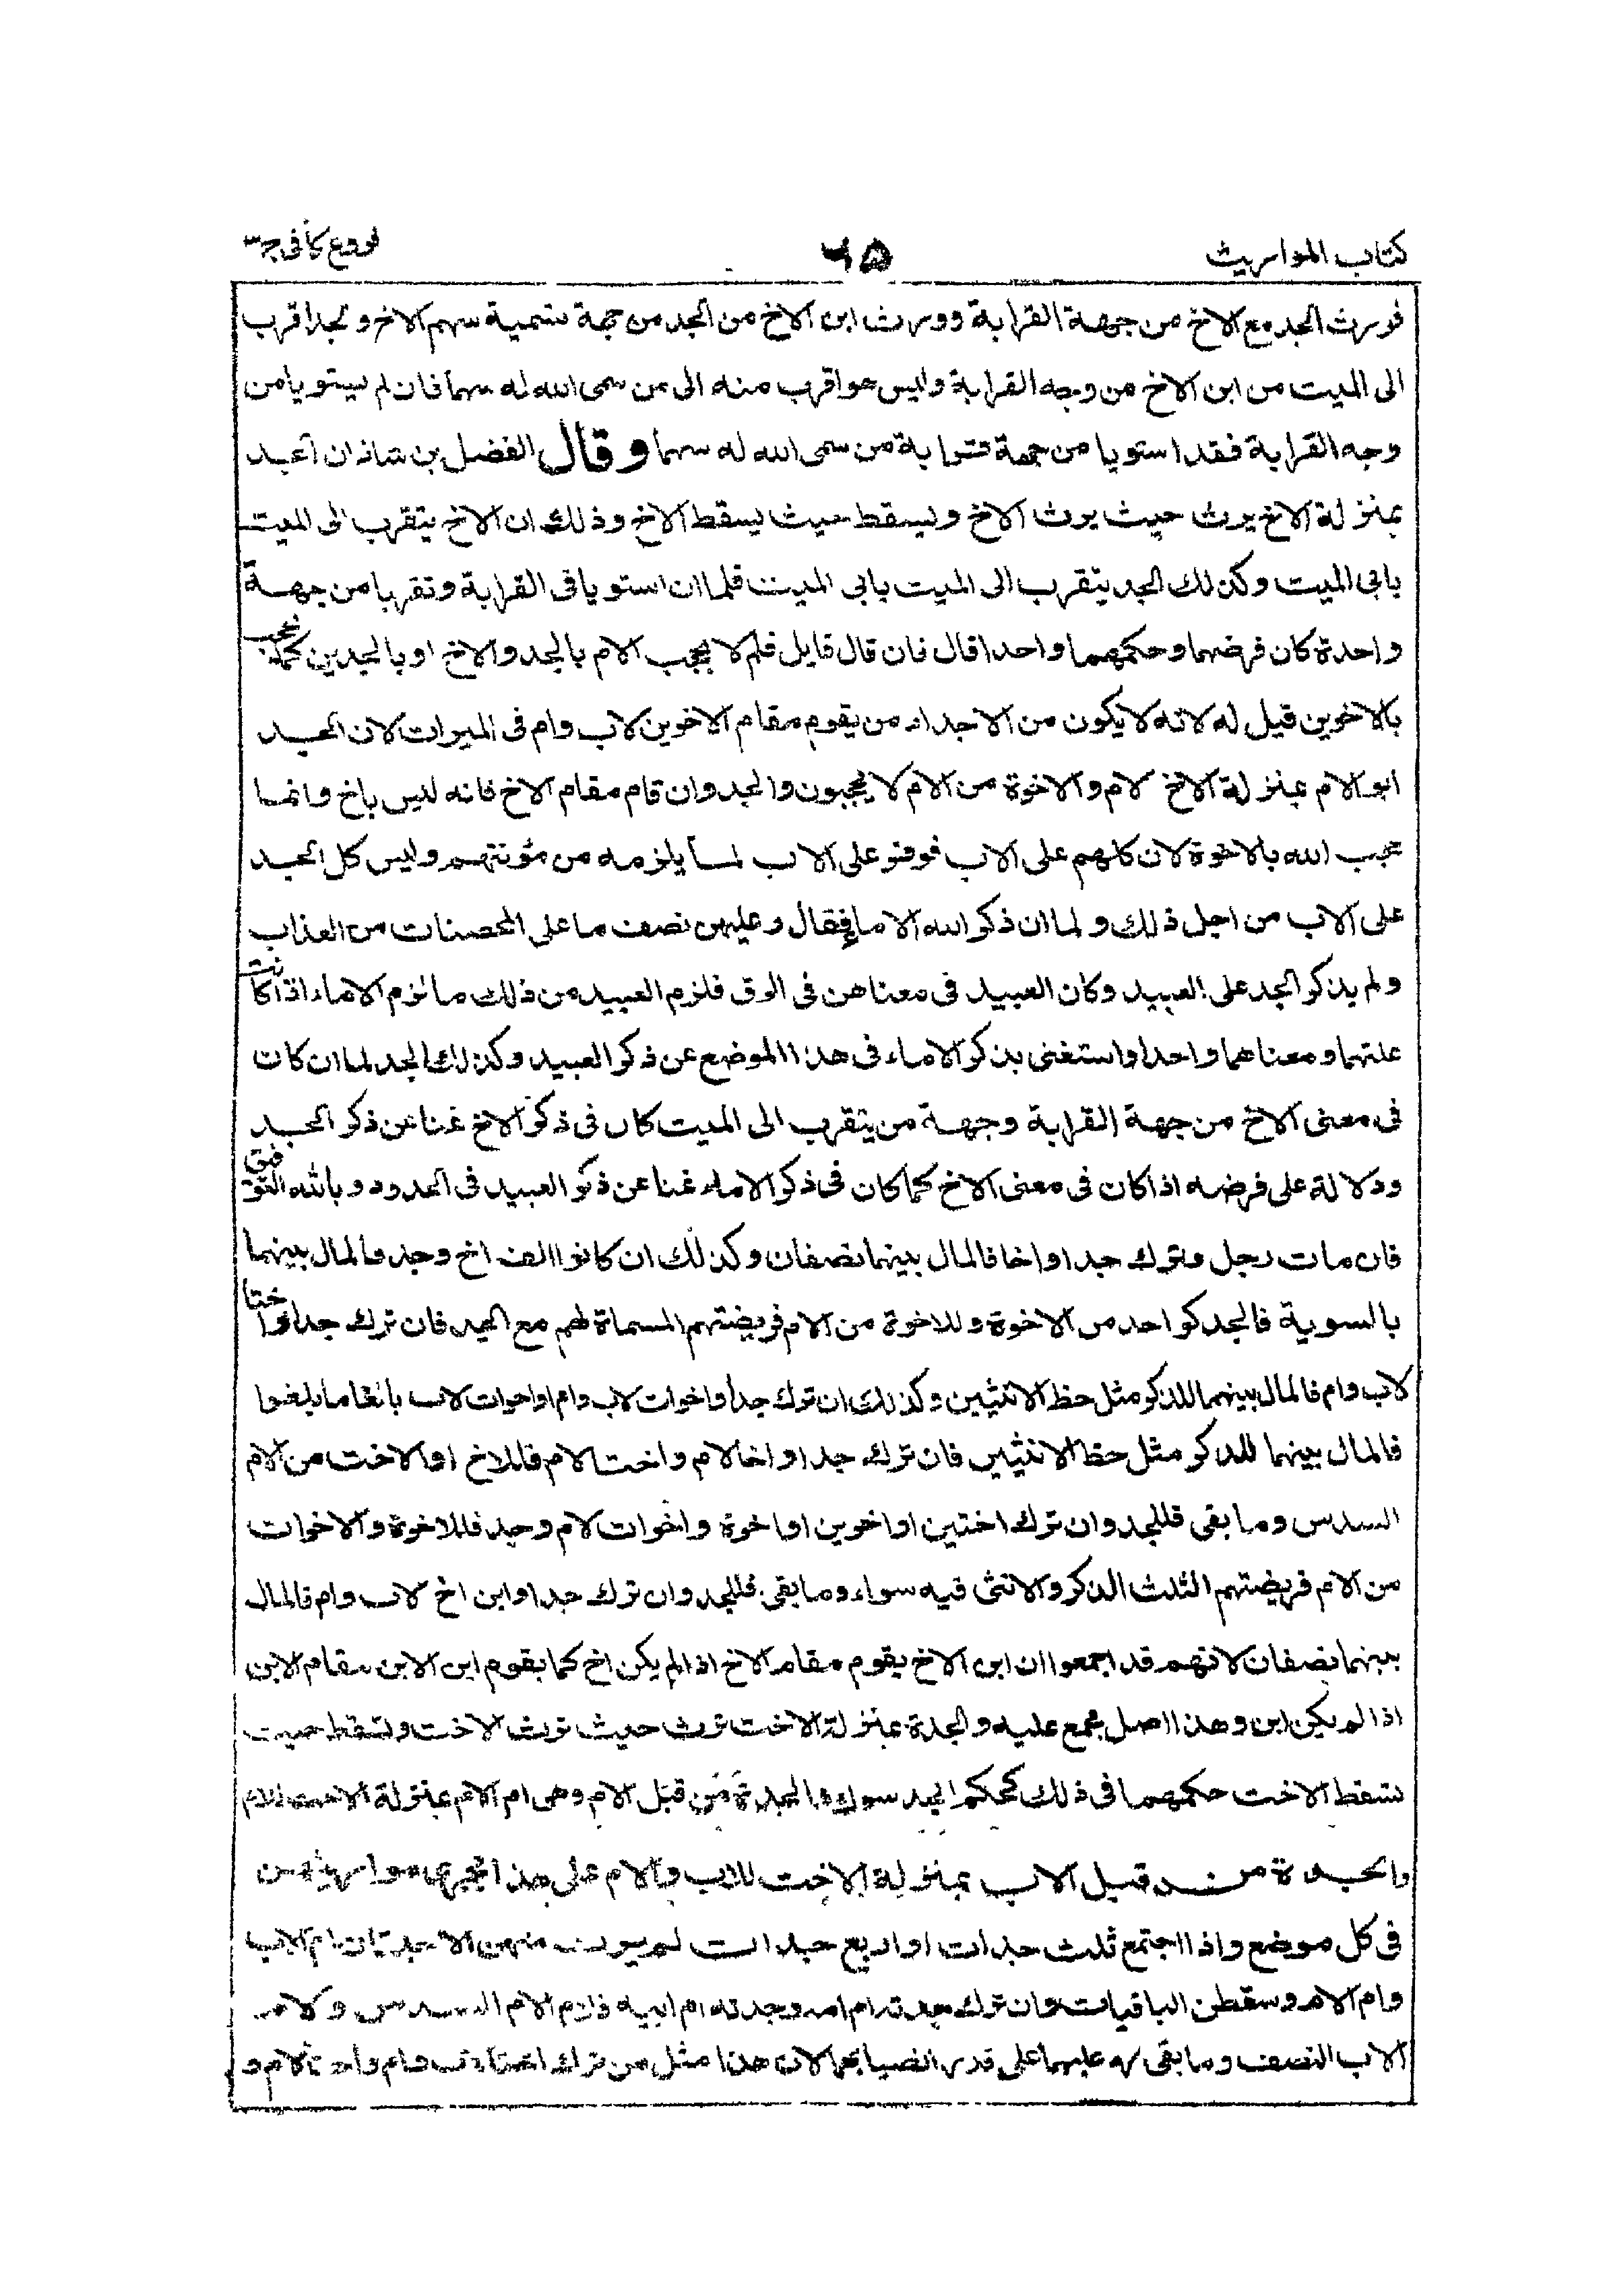 كتاب المواريث
٦٥
فروع كافى ج٣
فورث الجد مع الاخ من جهة القرابة وورث ابن الاخ من الجد من جهة تسمية سهم الاخ والجد اقرب
الى الميت من ابن الاخ من وجه القرابة وليس هو اقرب منه الى من سمى الله له سهما فان لم يستويا من
وجه القرابة فقد استويا من جهة قرابة من سمى الله له سهما وقال الفضل بن شاذان الجد
بمنزلة الاخ يرث حيث يرث الاخ ويسقط حيث يسقط الاخ وذلك ان الاخ يتقرب الى الميت
بابى الميت وكذلك الجد يتقرب الى الميت بابى الميت فلما ان استويا فى القرابة وتقربا من جهة
واحدة كان فرضهما وحكمهما واحدا قال فان قال قايل فلم لا يحجب الام بالجد والاخ او بالجدين كما يحجب
بالاخوين قيل له لانه لا يكون من الاجداد من يقوم مقام الاخوين لاب وام فى الميراث لان الجد
ابو الام بمنزلة الاخ لام والاخوة من الام لا يحجبون والجد وان قام مقام الاخ فانه ليس باخ وانما
حجب الله بالاخوة لان كلهم على الاب فوفر على الاب لما يلزمه من مؤنتهم وليس كل الجد
على الاب من اجل ذلك ولما ان ذكر الله الاماء فقال وعليهن نصف ما على المحصنات من العذاب
ولم يذكر الجد على العبيد وكان العبيد فى معناهن فى الرق فلزم العبيد من ذلك ما لزم الاماء اذا كانت
علتهما ومعناهما واحدا واستغنى بذكر الاماء فى هذا الموضع عن ذكر العبيد وكذلك الجد لما ان كان
فى معنى الاخ من جهة القرابة وجهة من يتقرب الى الميت كان فى ذكر الاخ غنا عن ذكر الجد
ودلالة على فرضه اذا كان فى معنى الاخ كما كان فى ذكر الاماء غنا عن ذكر العبيد فى الحدود وبالله التوفيق
فان مات رجل وترك جدا واخا فالمال بينهما نصفان وكذلك ان كانوا الف اخ وجد فالمال بينهما
بالسوية فالجد كواحد من الاخوة وللاخوة من الام فريضتهم المسماة لهم مع الجد فان ترك جدا واختا
لاب وام فالمال بينهما للذكر مثل حظ الانثيين وكذلك ان ترك جدا واخوات لاب وام او اخوات لاب بالغا ما بلغوا
فالمال بينهما للذكر مثل حظ الانثيين فان ترك جدا واخا لام واختا لام فللاخ او الاخت من الام
السدس وما بقى فللجد وان ترك اختين او اخوين او اخوة واخوات لام وجد فللاخوة والاخوات
من الام فريضتهم الثلث الذكر والانثى فيه سواء وما بقى فللجد وان ترك جدا وابن اخ لاب وام فالمال
بينهما نصفان لانهم قد اجمعوا ان ابن الاخ يقوم مقام الاخ اذا لم يكن اخ كما يقوم ابن الابن مقام الابن
اذا لم يكن ابن وهذا اصل مجمع عليه والجدة بمنزلة الاخت ترث حيث ترث الاخت وتسقط حيث
تسقط الاخت حكمهما فى ذلك كحكم الجد سواء والجدة من قبل الام وهى ام الام بمنزلة الاخت للام
والجدة من قبل الاب بمنزلة الاخت للاب والام على هذا تجرى مواريثهن
فى كل موضع واذا اجتمع ثلث جدات او اربع جدات لم يرث منهن الا جدتان ام الاب
وام الام وسقطن الباقيات وان ترك جدته ام امه وجدته ام ابيه فلام الام السدس ولام
الاب النصف وما بقى رد عليهما على قدر انصبائهما لان هذا مثل من ترك اختا لاب وام واختا لام و